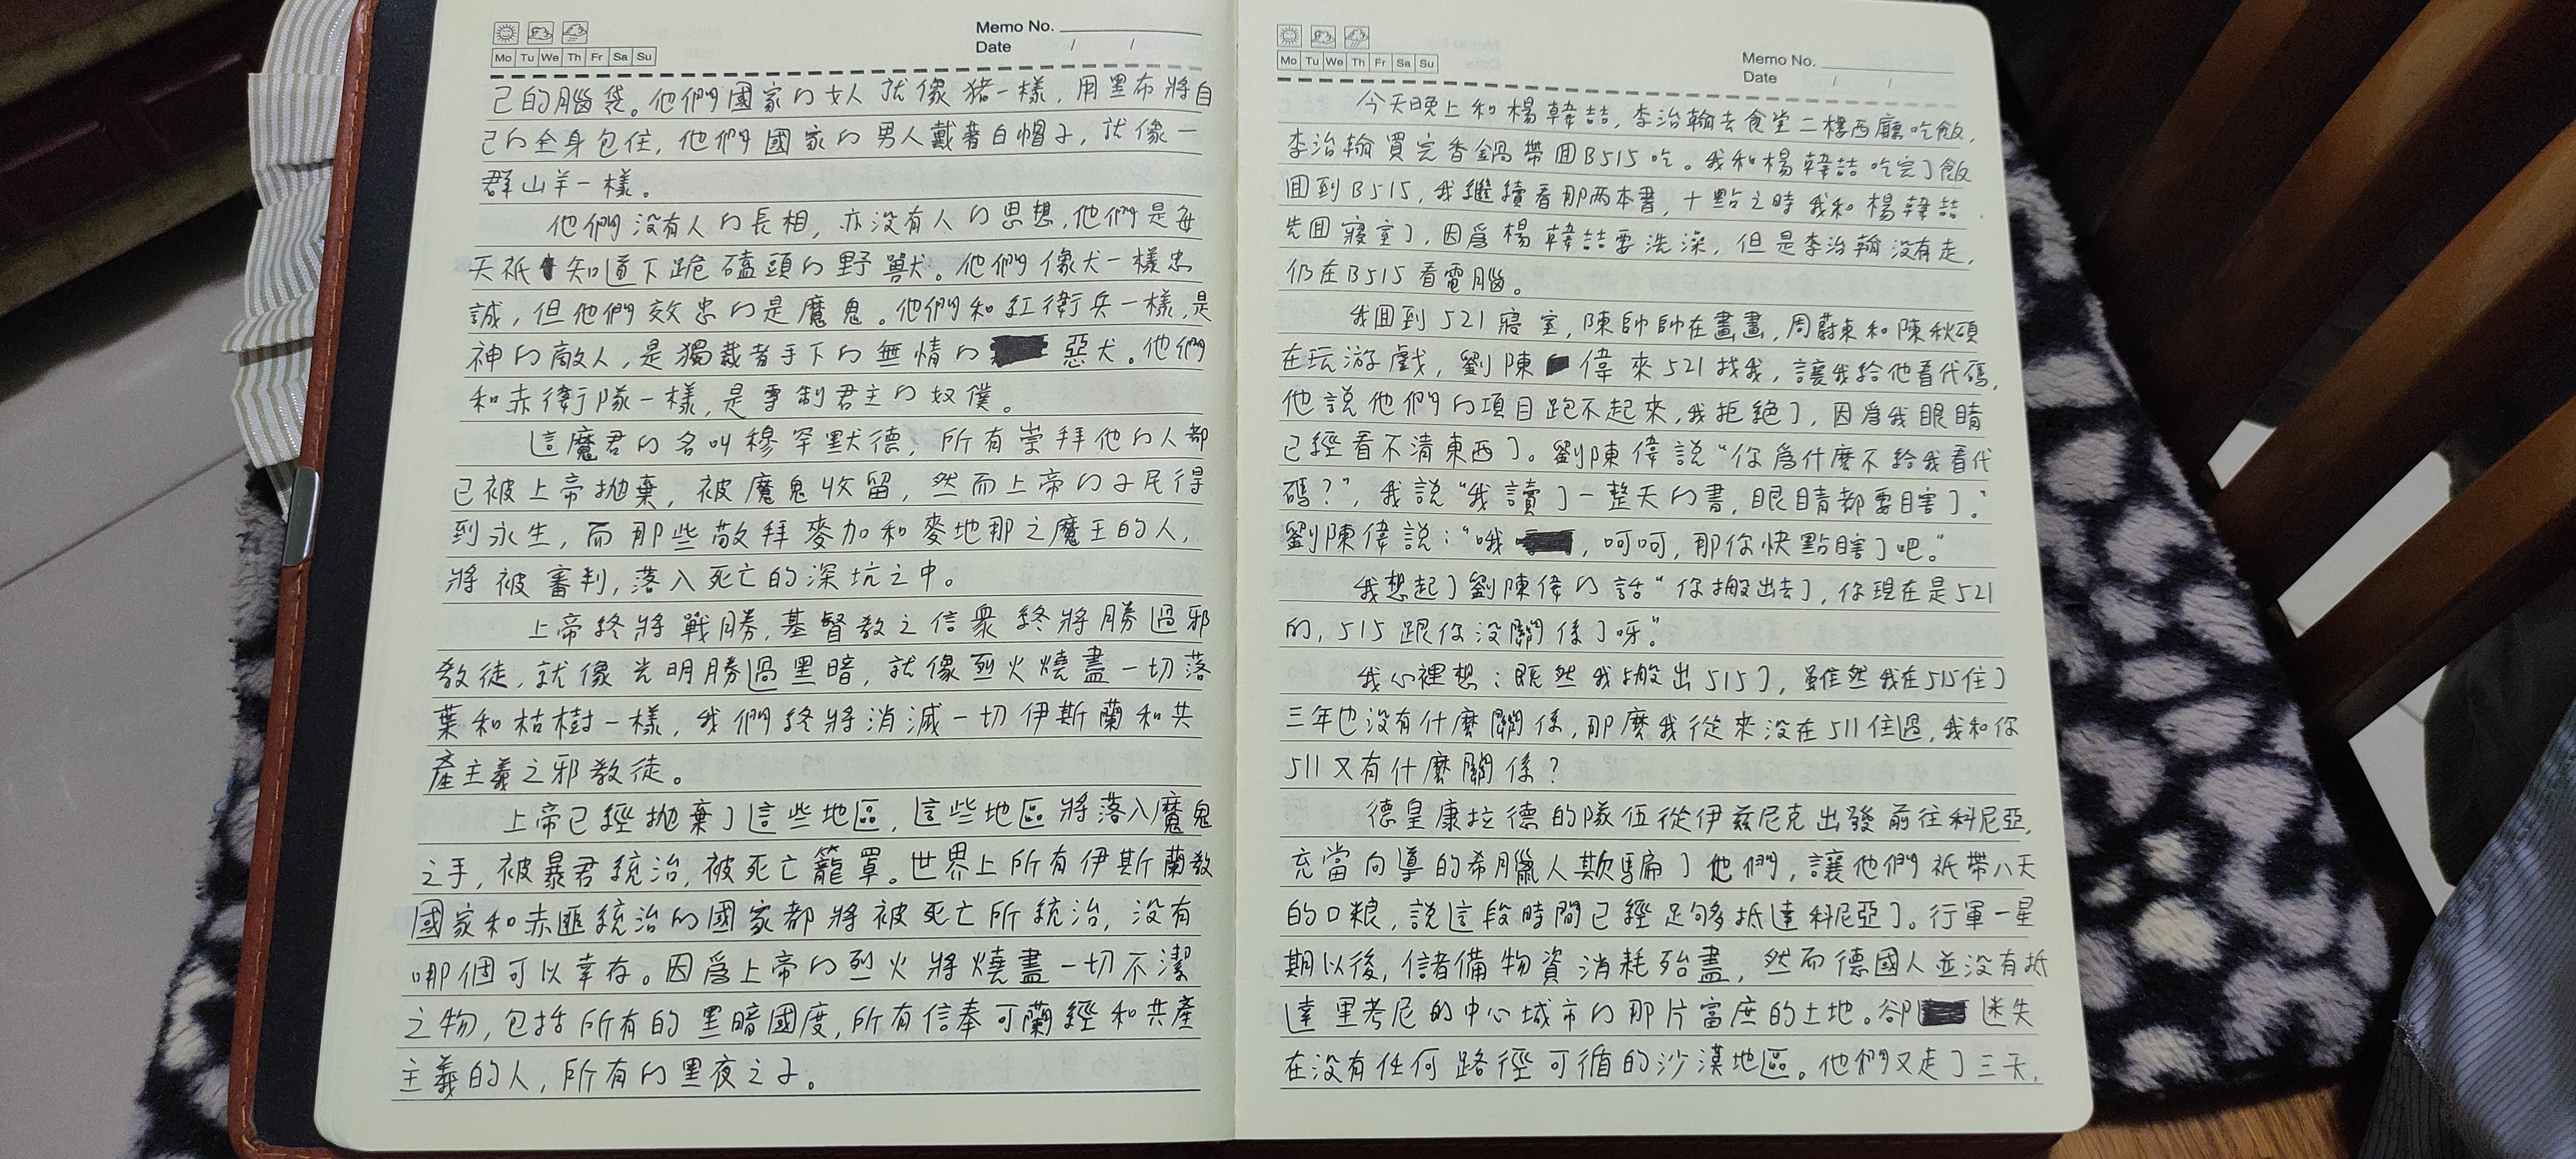 Memo No.
Date / /
Mo Tu We Th Fr Sa Su
己的腦袋。他們國家的女人就像猪一樣，用黑布將自
己的全身包住，他們國家的男人戴著白帽子，就像一
群山羊一樣。
他們没有人的長相，亦没有人的思想，他們是每
天祇知道下跪磕頭的野獸。他們像犬一樣忠
誠，但他們效忠的是魔鬼。他們和紅衛兵一樣，是
神的敵人，是獨裁者手下的無情的惡犬。他們
和赤衛隊一樣，是專制君主的奴僕。
這魔君的名叫穆罕默德，所有崇拜他的人都
已被上帝抛棄，被魔鬼收留，然而上帝的子民得
到永生，而那些敬拜麥加和麥地那之魔王的人，
將被審判，落入死亡的深坑之中。
上帝終將戰勝，基督教之信衆終將勝過邪
教徒，就像光明勝過黑暗，就像烈火燒盡一切落
葉和枯樹一樣，我們終將消滅一切伊斯蘭和共
產主義之邪教徒。
上帝已經抛棄了這些地區，這些地區將落入魔鬼
之手，被暴君統治，被死亡籠罩。世界上所有伊斯蘭教
國家和赤匪統治的國家都將被死亡所統治，没有
哪個可以幸存。因爲上帝的烈火將燒盡一切不潔
之物，包括所有的黑暗國度，所有信奉可蘭經和共產
主義的人，所有的黑夜之子。
Memo No.
Date / /
Mo Tu We Th Fr Sa Su
今天晚上和楊韓喆，李治翰去食堂二樓西廳吃飯，
李治翰買完香鍋帶回B515吃。我和楊韓喆吃完了飯
回到B515，我繼續看那两本書，十點之時我和楊韓喆
先回寢室了，因爲楊韓喆要洗澡，但是李治翰没有走，
仍在B515看電腦。
我回到521寢室，陳帥帥在畫畫，周蔚東和陳秋碩
在玩游戲，劉陳偉來521找我，讓我給他看代碼，
他説他們的項目跑不起來，我拒絶了，因爲我眼睛
已經看不清東西了。劉陳偉説“你爲什麽不給我看代
碼？”，我説“我讀了一整天的書，眼睛都要瞎了。”
劉陳偉説：“哦，呵呵，那你快點瞎了吧。”
我想起了劉陳偉的話“你搬出去了，你現在是521
的，515跟你没關係了呀。”
我心裡想：既然我搬出515了，雖然我在515住了
三年也没有什麽關係，那麽我從來没在511住過，我和你
511又有什麽關係？
德皇康拉德的隊伍從伊兹尼克出發前往科尼亞，
充當向導的希臘人欺騙了他們，讓他們祇帶八天
的口粮，説這段時間已經足够抵達科尼亞了。行軍一星
期以後，儲備物資消耗殆盡，然而德國人並没有抵
達里考尼的中心城市的那片富庶的土地。卻迷失
在没有任何路徑可循的沙漠地區。他們又走了三天，